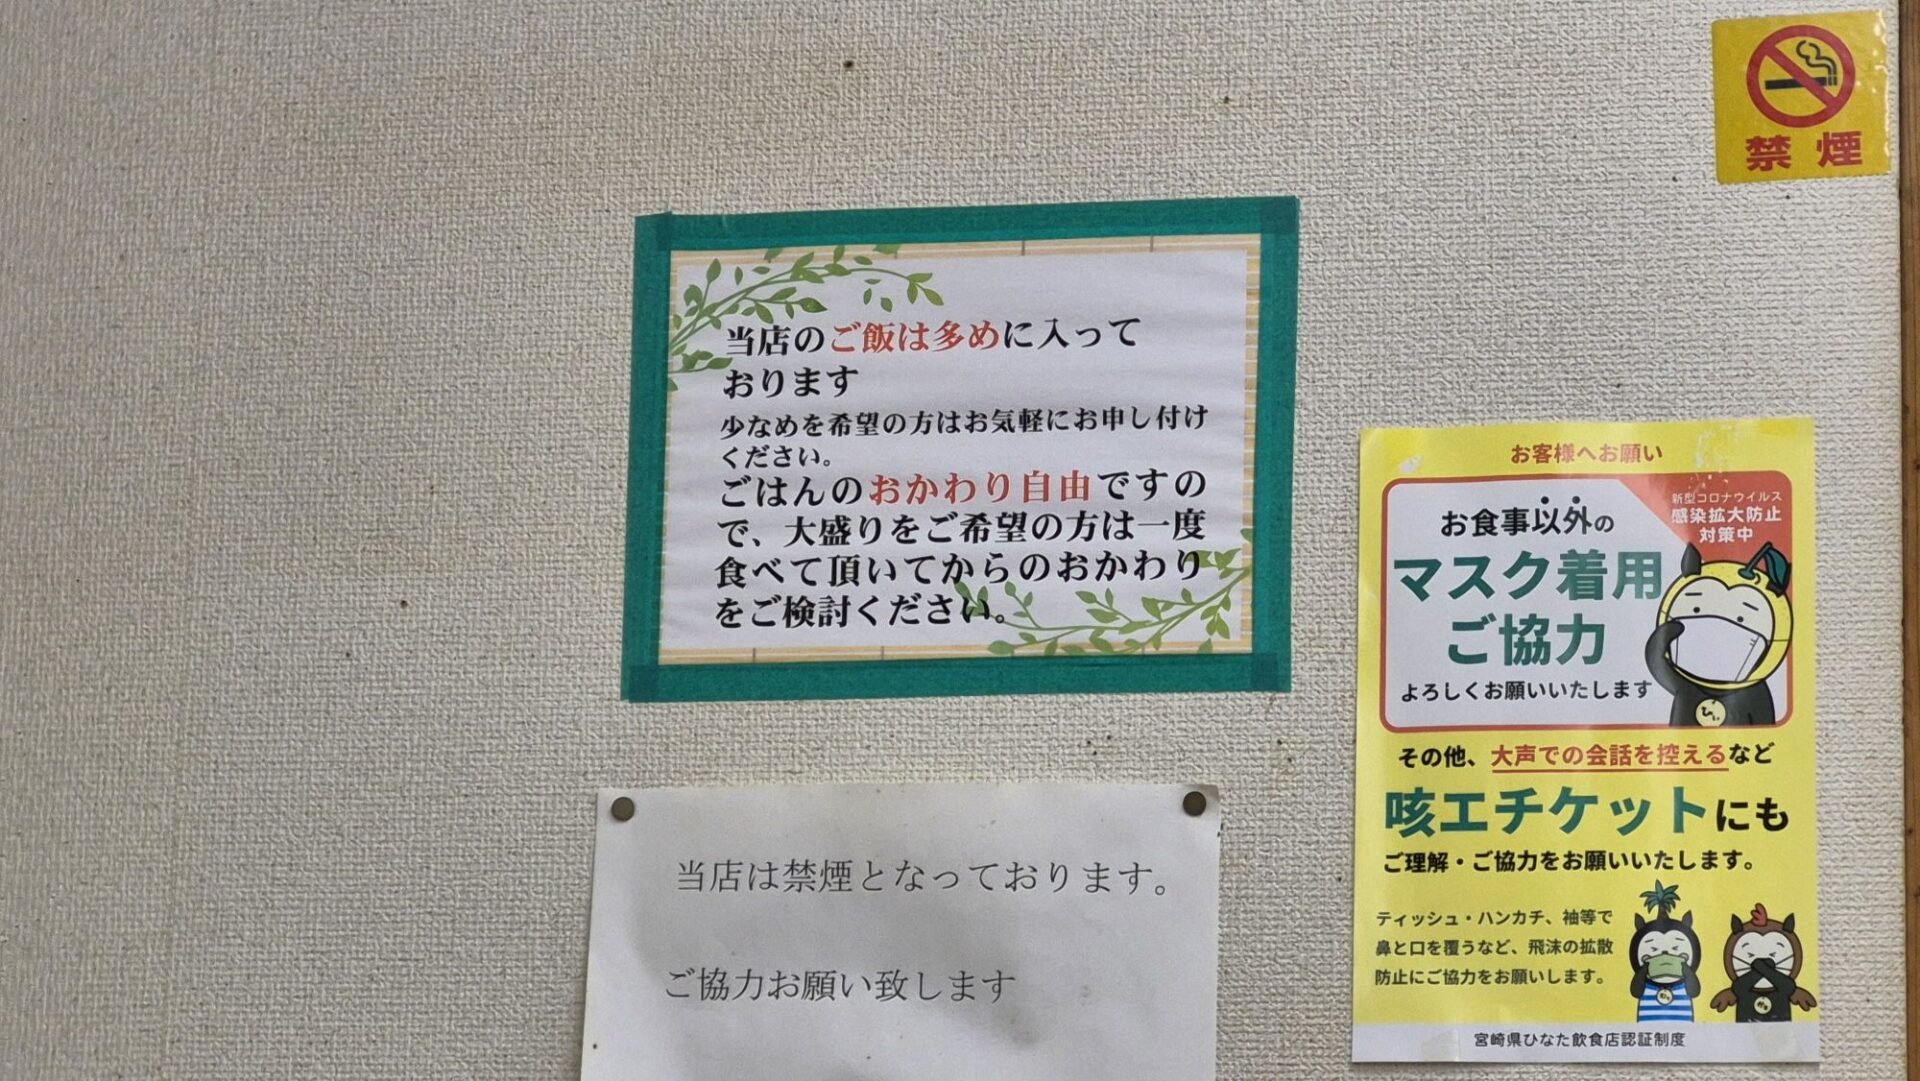 禁煙
当店のご飯は多めに入って
おります
少なめを希望の方はお気軽にお申し付け
ください。
ごはんのおかわり自由ですの
で、大盛りをご希望の方は一度
食べて頂いてからのおかわり
をご検討ください。
当店は禁煙となっております。
ご協力お願い致します
お客様へお願い
新型コロナウイルス
感染拡大防止
対策中
お食事以外の
マスク着用
ご協力
よろしくお願いいたします
その他、大声での会話を控えるなど
咳エチケットにも
ご理解・ご協力をお願いいたします。
ティッシュ・ハンカチ、袖等で
鼻と口を覆うなど、飛沫の拡散
防止にご協力をお願いします。
宮崎県ひなた飲食店認証制度